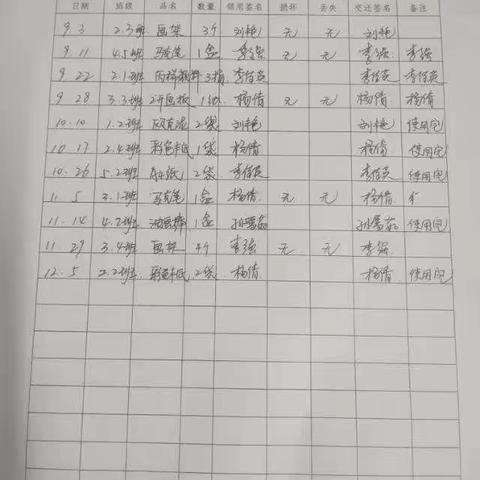 日期 班级 品名 数量 领用签名 损坏 丢失 交还签名 备注
9.3 2.3班 画架 3个 刘艳 无 无 刘艳
9.11 4.5班 马克笔 1盒 李强 无 无 李强 李强
9.22 2.1班 丙烯颜料 3箱 李佰英 李佰英 李佰英
9.28 3.3班 2开画板 1块 杨倩 无 无 杨倩 杨倩
10.10 1.2班 2袋 刘艳 刘艳 使用完
10.17 2.4班 彩色卡纸 1袋 杨倩 杨倩 使用完
10.26 5.2班 A4纸 2袋 李佰英 李佰英 使用完
11.5 3.1班 马克笔 1盒 杨倩 无 无 杨倩
11.14 4.2班 油画棒 1盒 使用完
11.29 3.4班 画架 4个 李强 无 无 李强
12.5 2.2班 彩色卡纸 2袋 杨倩 杨倩 使用完